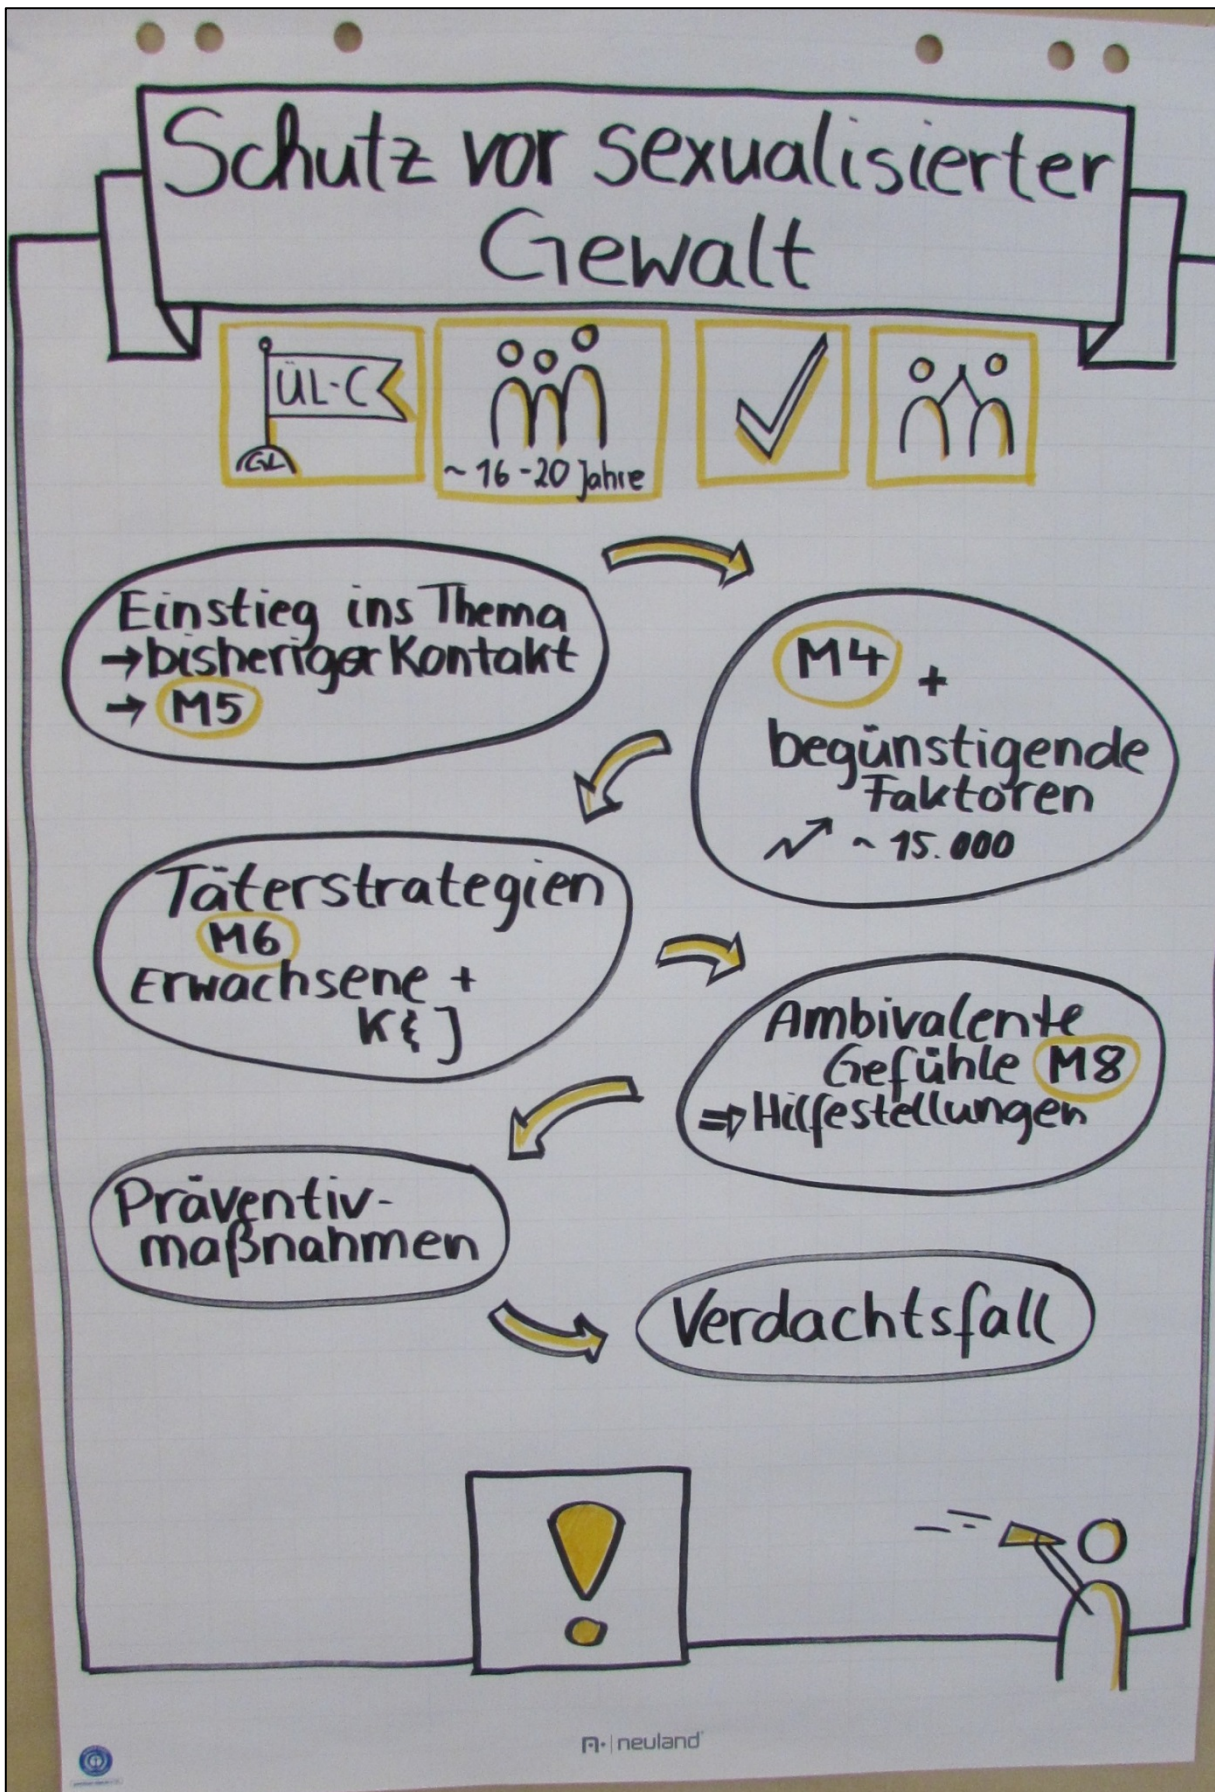 Schutz vor sexualisierter
Gewalt
ÜL-C
GL
~ 16 - 20 Jahre
Einstieg ins Thema
→ bisheriger Kontakt
→ M5
M4 +
begünstigende
Faktoren
~ 15.000
Täterstrategien
M6
Erwachsene +
K & J
Ambivalente
Gefühle M8
⇒ Hilfestellungen
Präventiv-
maßnahmen
Verdachtsfall
!
neuland